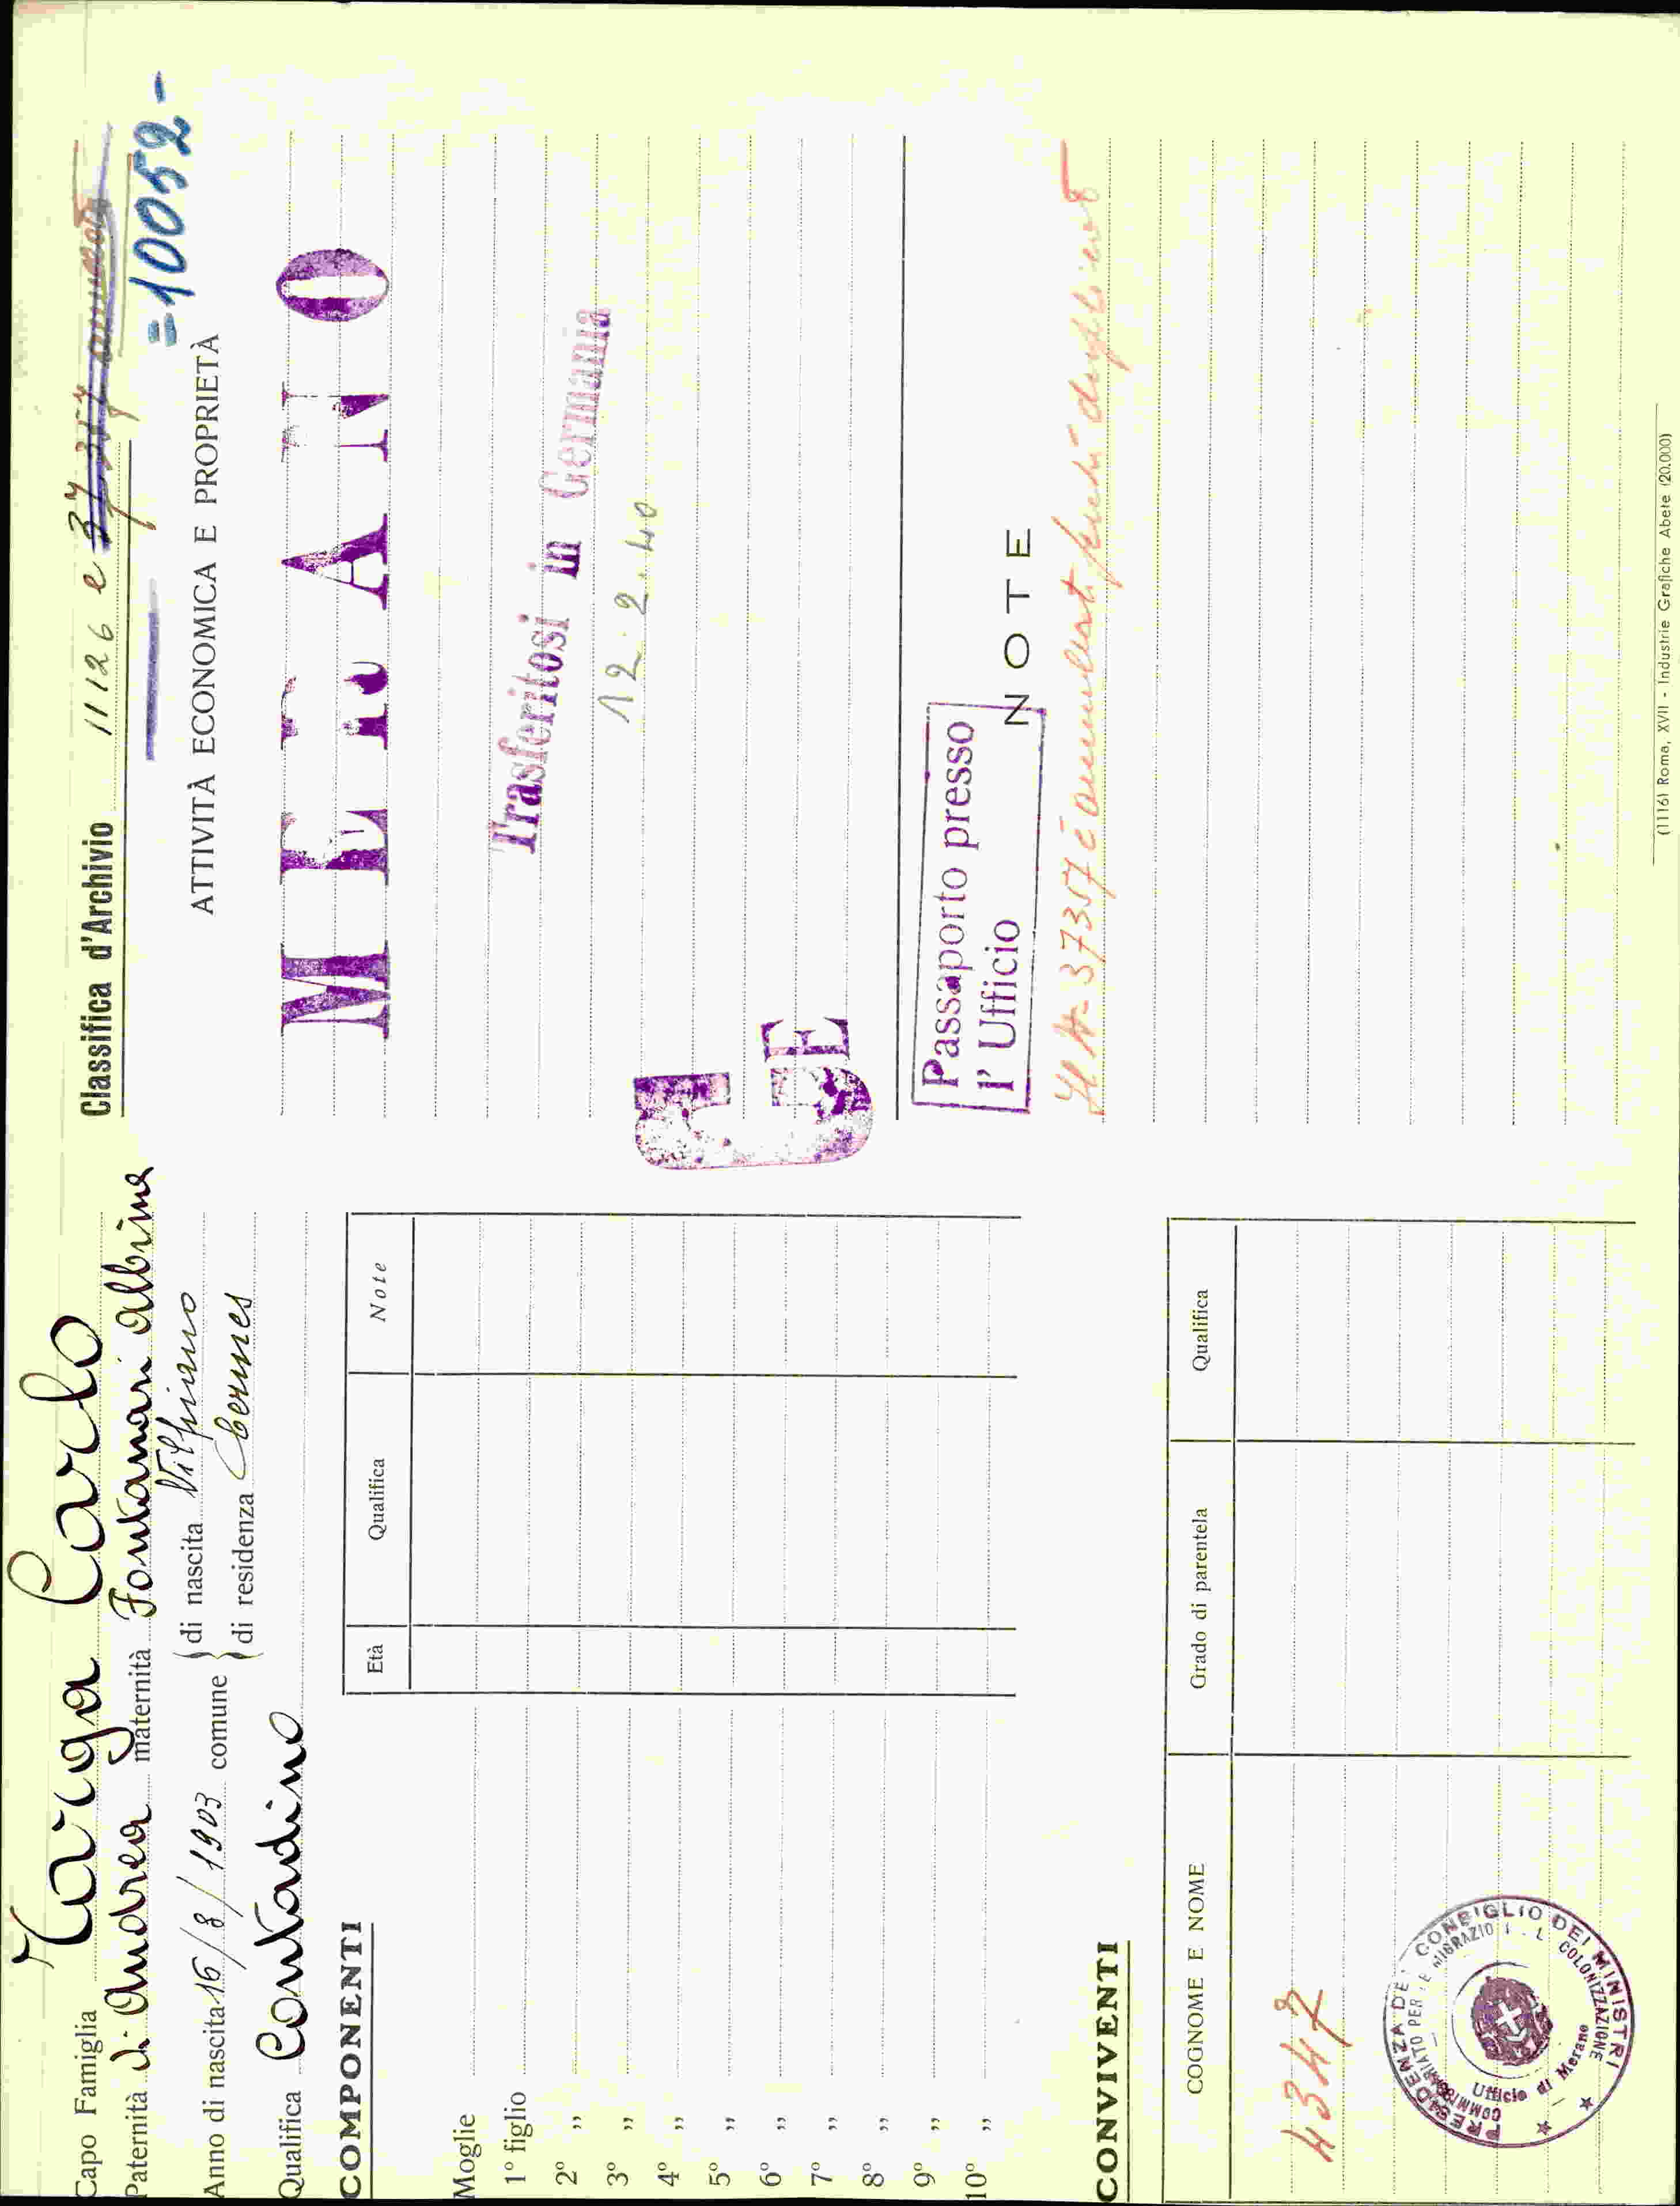 Capo Famiglia Tariga Carlo
Paternità di Andrea maternità Fontanari Albina
Anno di nascita 16/8/1903 comune } di nascita Vilpiano
} di residenza Cermes
Qualifica Contadino
COMPONENTI
Età Qualifica Note
Moglie
1º figlio
2º „
3º „
4º „
5º „
6º „
7º „
8º „
9º „
10º „
CONVIVENTI
COGNOME E NOME Grado di parentela Qualifica
4347
PRESIDENZA DEL CONSIGLIO DEI MINISTRI
COMMISSARIATO PER LE MIGRAZIONI E LA COLONIZZAZIONE
Ufficio di Merano
Classifica d'Archivio 11126 e 37357
=10052-
ATTIVITÀ ECONOMICA E PROPRIETÀ
MERANO
Trasferitosi in Germania
12.2.40
GE
Passaporto presso
l'Ufficio
NOTE
Il N- 37357 è duplicato
(1116) Roma, XVII - Industrie Grafiche Abete (20.000)